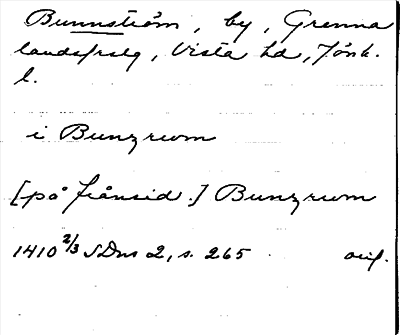 Bunnström, by, Grenna
landsfrslg, Vista hd, Jönk.
l.
i Bunzrwm
[på frånsid.] Bunzrwm
1410 2/3 SDns 2, s. 265 orig.